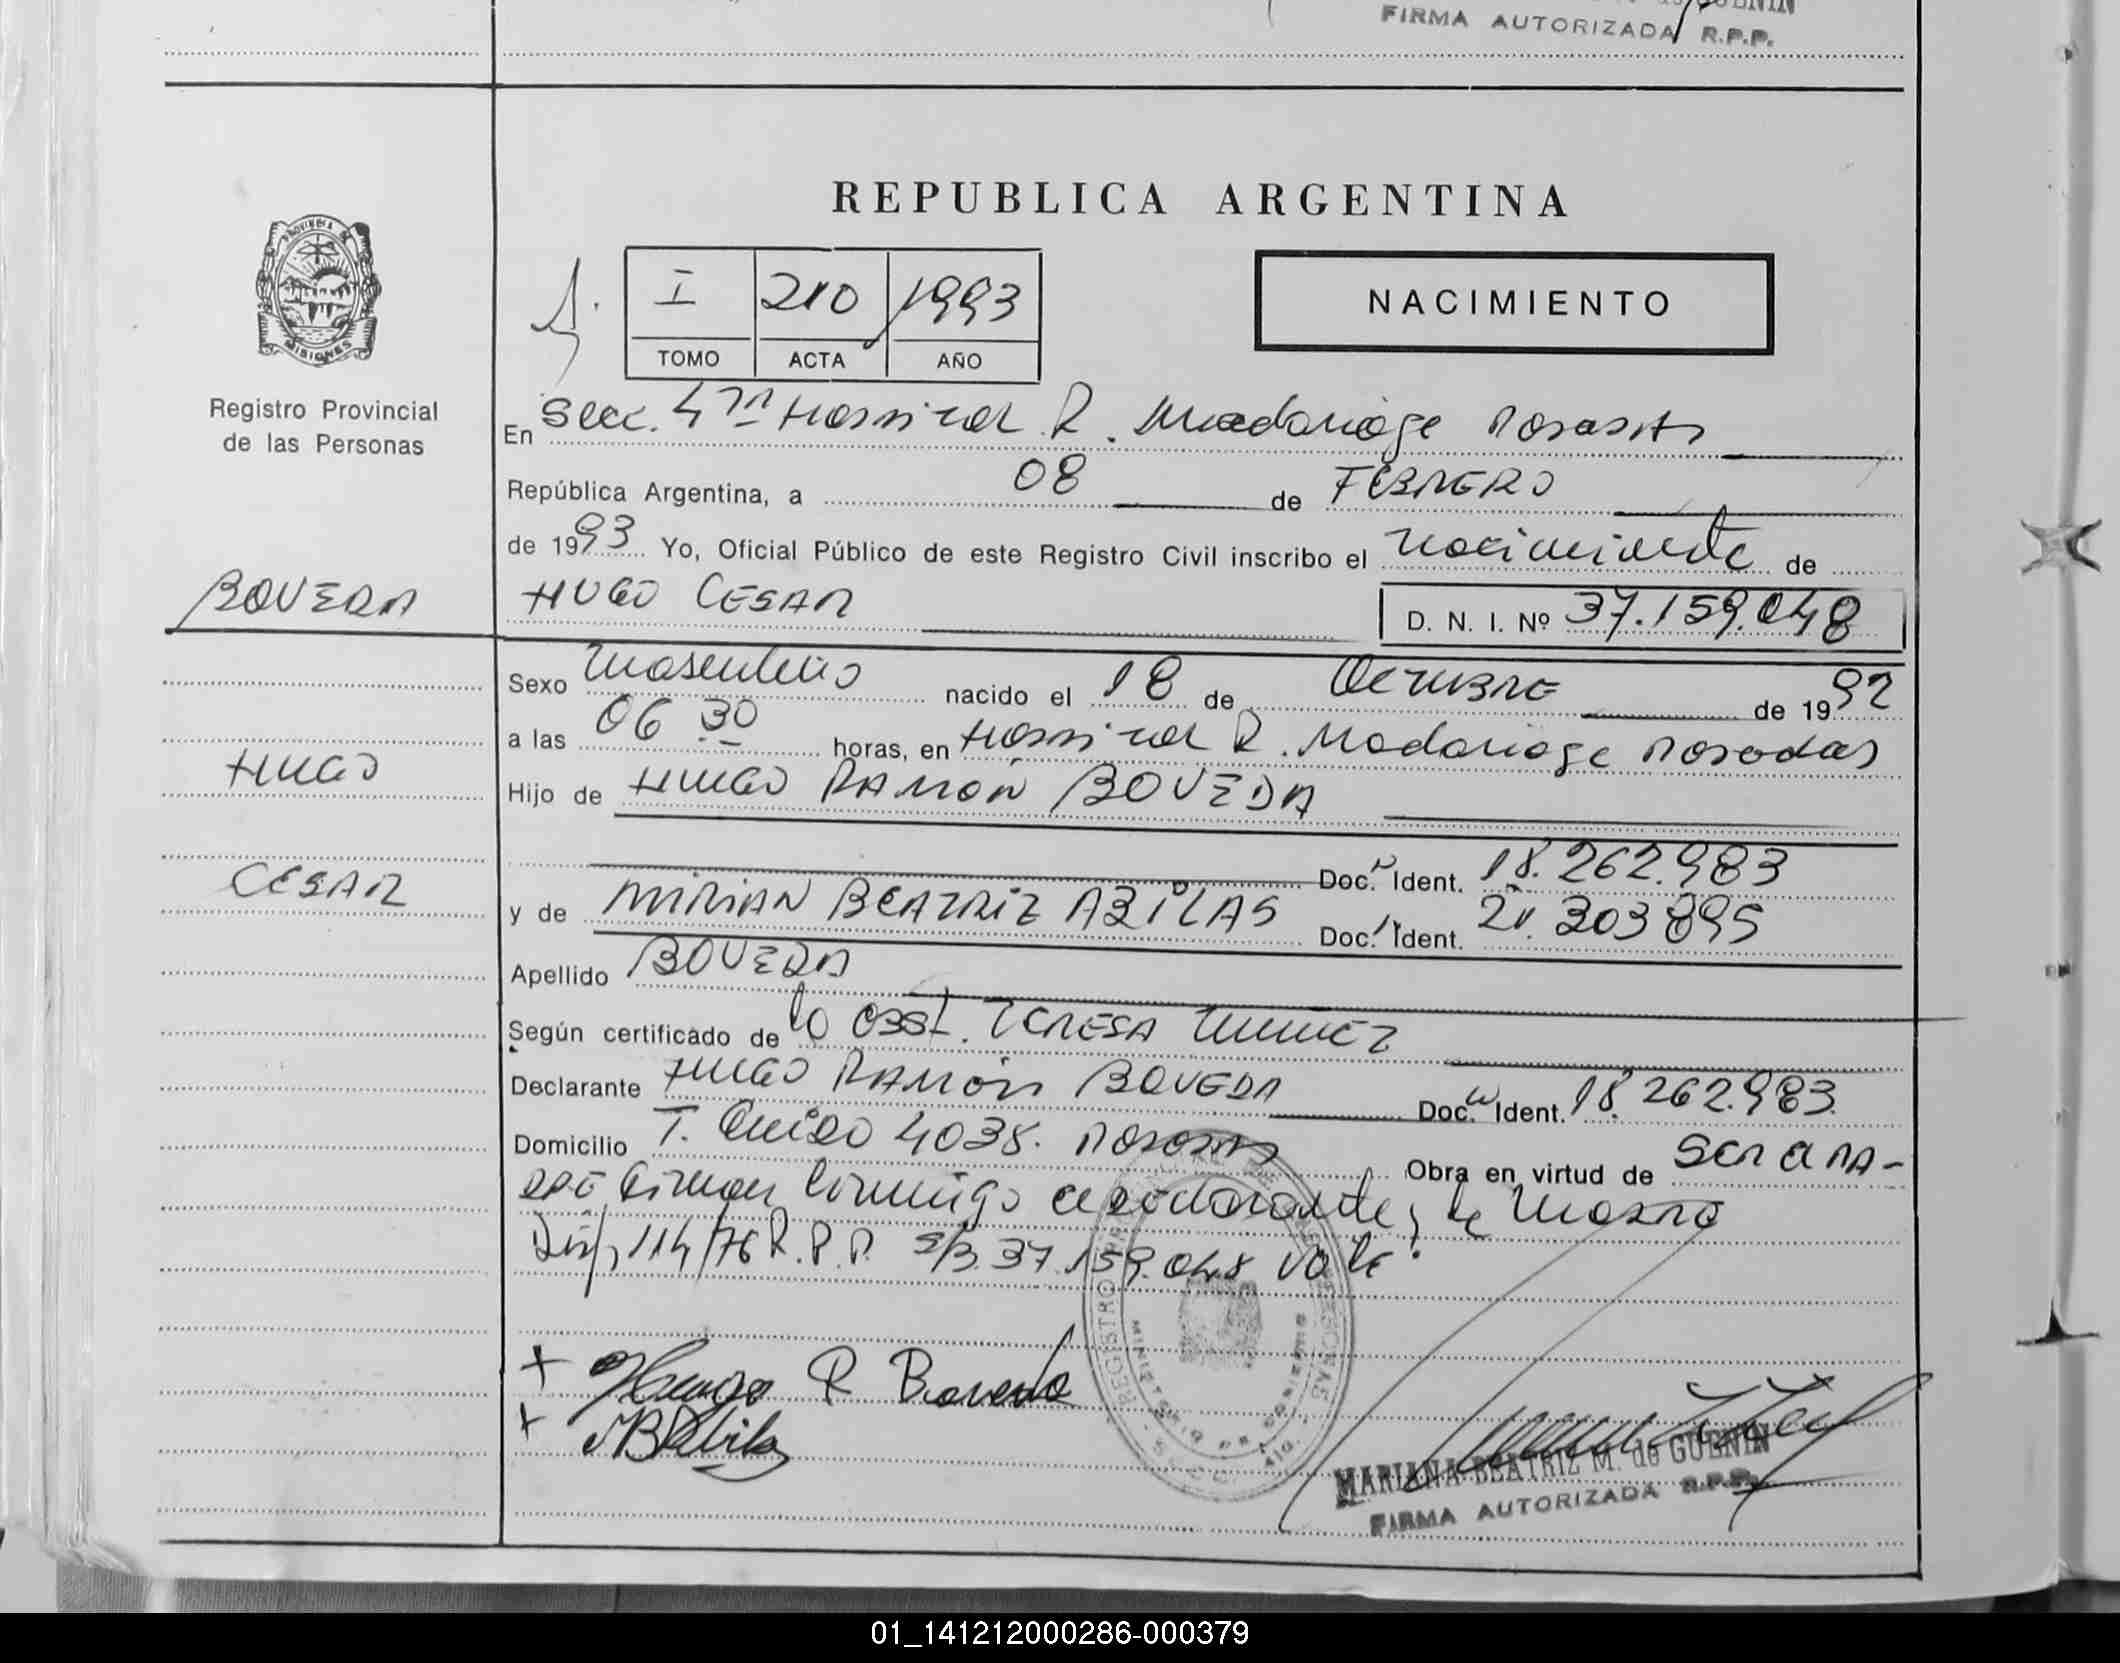 FIRMA AUTORIZADA R.P.P.
REPUBLICA ARGENTINA
PROVINCIA DE MISIONES
I 210 1993
TOMO ACTA AÑO
NACIMIENTO
Registro Provincial
de las Personas
En Secc. 4ta Hospital R. Madariaga Posadas
República Argentina, a 08 de FEBRERO
de 1993 Yo, Oficial Público de este Registro Civil inscribo el nacimiento de
BOVEDA
HUGO CESAR
D. N. I. Nº 37.159.048
Sexo Masculino nacido el 18 de OCTUBRE de 1992
a las 06 30 horas, en Hospital R. Madariaga Posadas
HUGO
Hijo de HUGO RAMON BOVEDA
Doc. Ident. 18.262.983
CESAR
y de MIRIAN BEATRIZ ABILAS Doc. Ident. 21.303.895
Apellido BOVEDA
Según certificado de la Obst. TERESA
Declarante HUGO RAMON BOVEDA Doc. Ident. 18.262.983
Domicilio T. Guido 4038. Posadas Obra en virtud de
firman conmigo declarante, la Madre
Disp 114/76 R.P.P. s/B. 37.159.048 Vale.
Hugo R Boveda
MBAbila
REGISTRO PROVINCIAL DE LAS PERSONAS
MINISTERIO DE GOBIERNO
MARIANA BEATRIZ M. de GUENIN
FIRMA AUTORIZADA R.P.P.
01_141212000286-000379